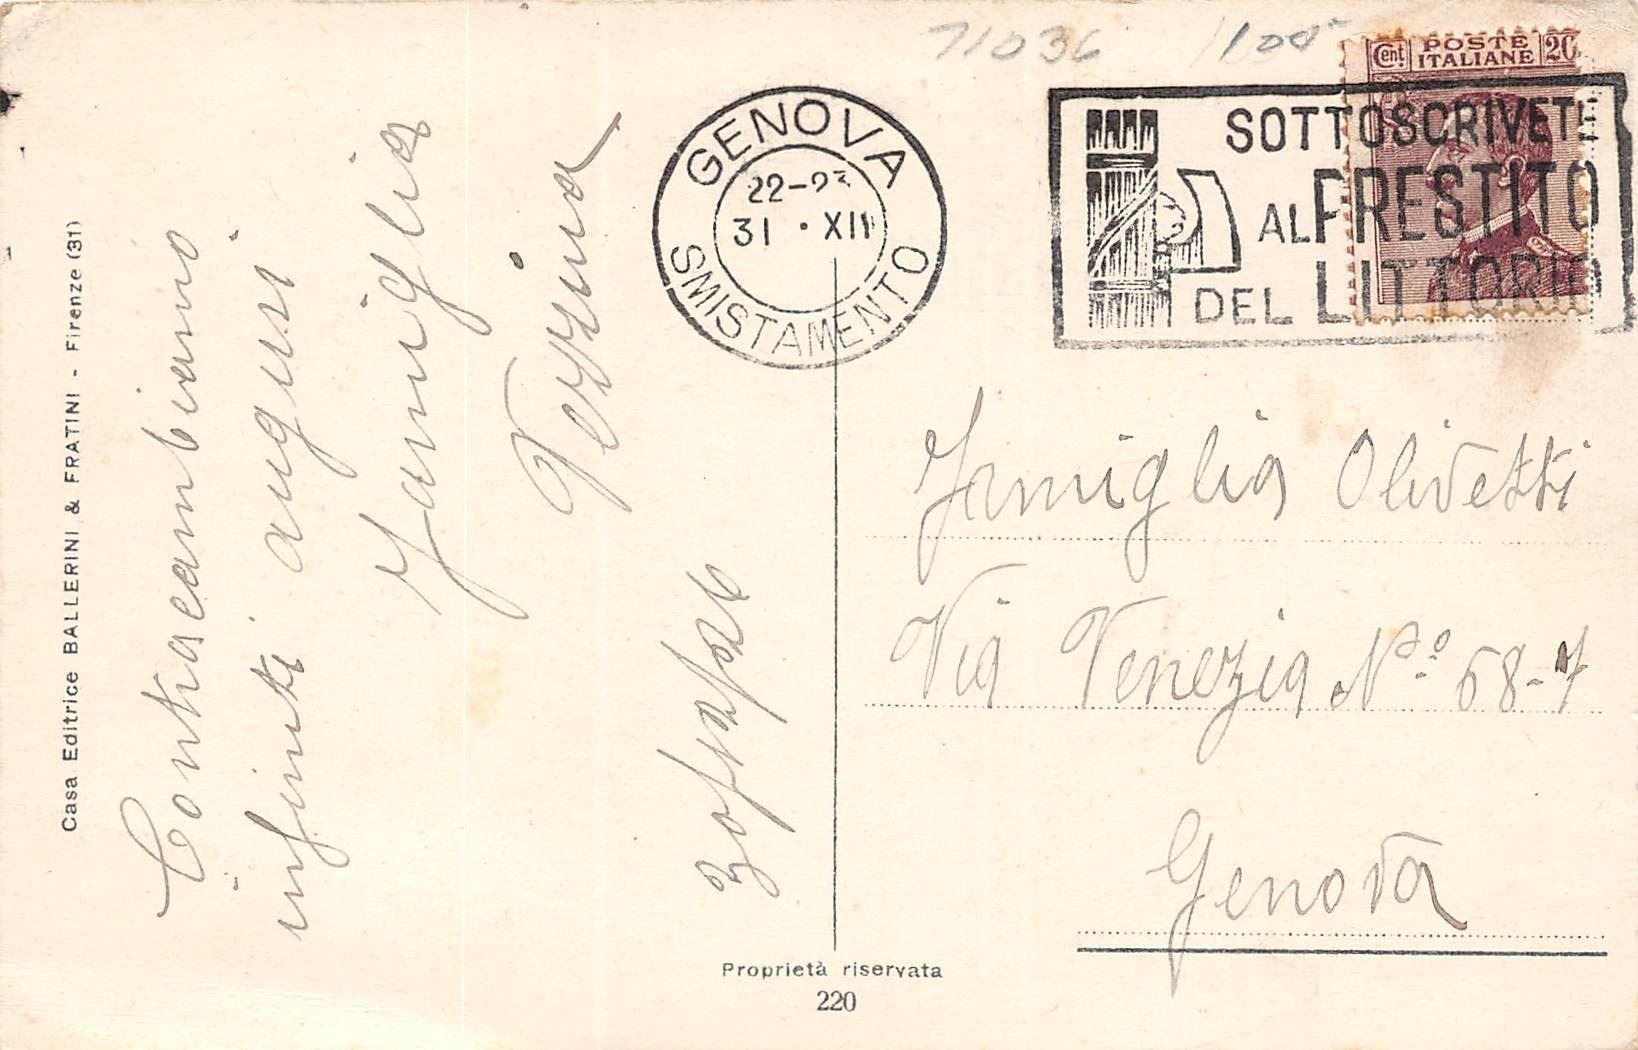 71036 100
Cent POSTE ITALIANE 20
GENOVA
22-23
31 · XII
SMISTAMENTO
SOTTOSCRIVETE
AL PRESTITO
DEL LITTORIO
Casa Editrice BALLERINI & FRATINI - Firenze (31)
Contracambiamo
infiniti auguri
Famiglia
30/12/926
Famiglia Olivetti
Via Venezia N.º 68-7
Genova
Proprietà riservata
220